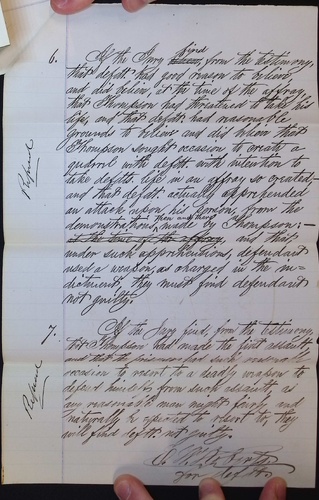 6. If the Jury find from the testimony,
that defdt had good reason to believe,
and did believe, at the time of the affray,
that Thompson had threatened to take his
life, and that defdt. had reasonable
grounds to believe and did believe that
Thompson sought occasion to create a
quarrel with defdt. with intention to
take defdts. life in an affray so created,
and that defdt. actually apprehended
an attack upon his person, from the
demonstrations, then and there made by Thompson:—
at the time of the affray, and that,
under such apprehensions, defendant
used a weapon, as charged in the in-
dictment, they must find defendant
not guilty.
Refused
7. If the Jury find, from the testimony,
that Thompson had made the first assault,
and that the prisoner had such reasonable
occasion to resort to a deadly weapon to
defend himself from such assault, as
any reasonable man might fairly and
naturally be expected to resort to, they
will find defdt. not guilty.
Refused
for defdt.